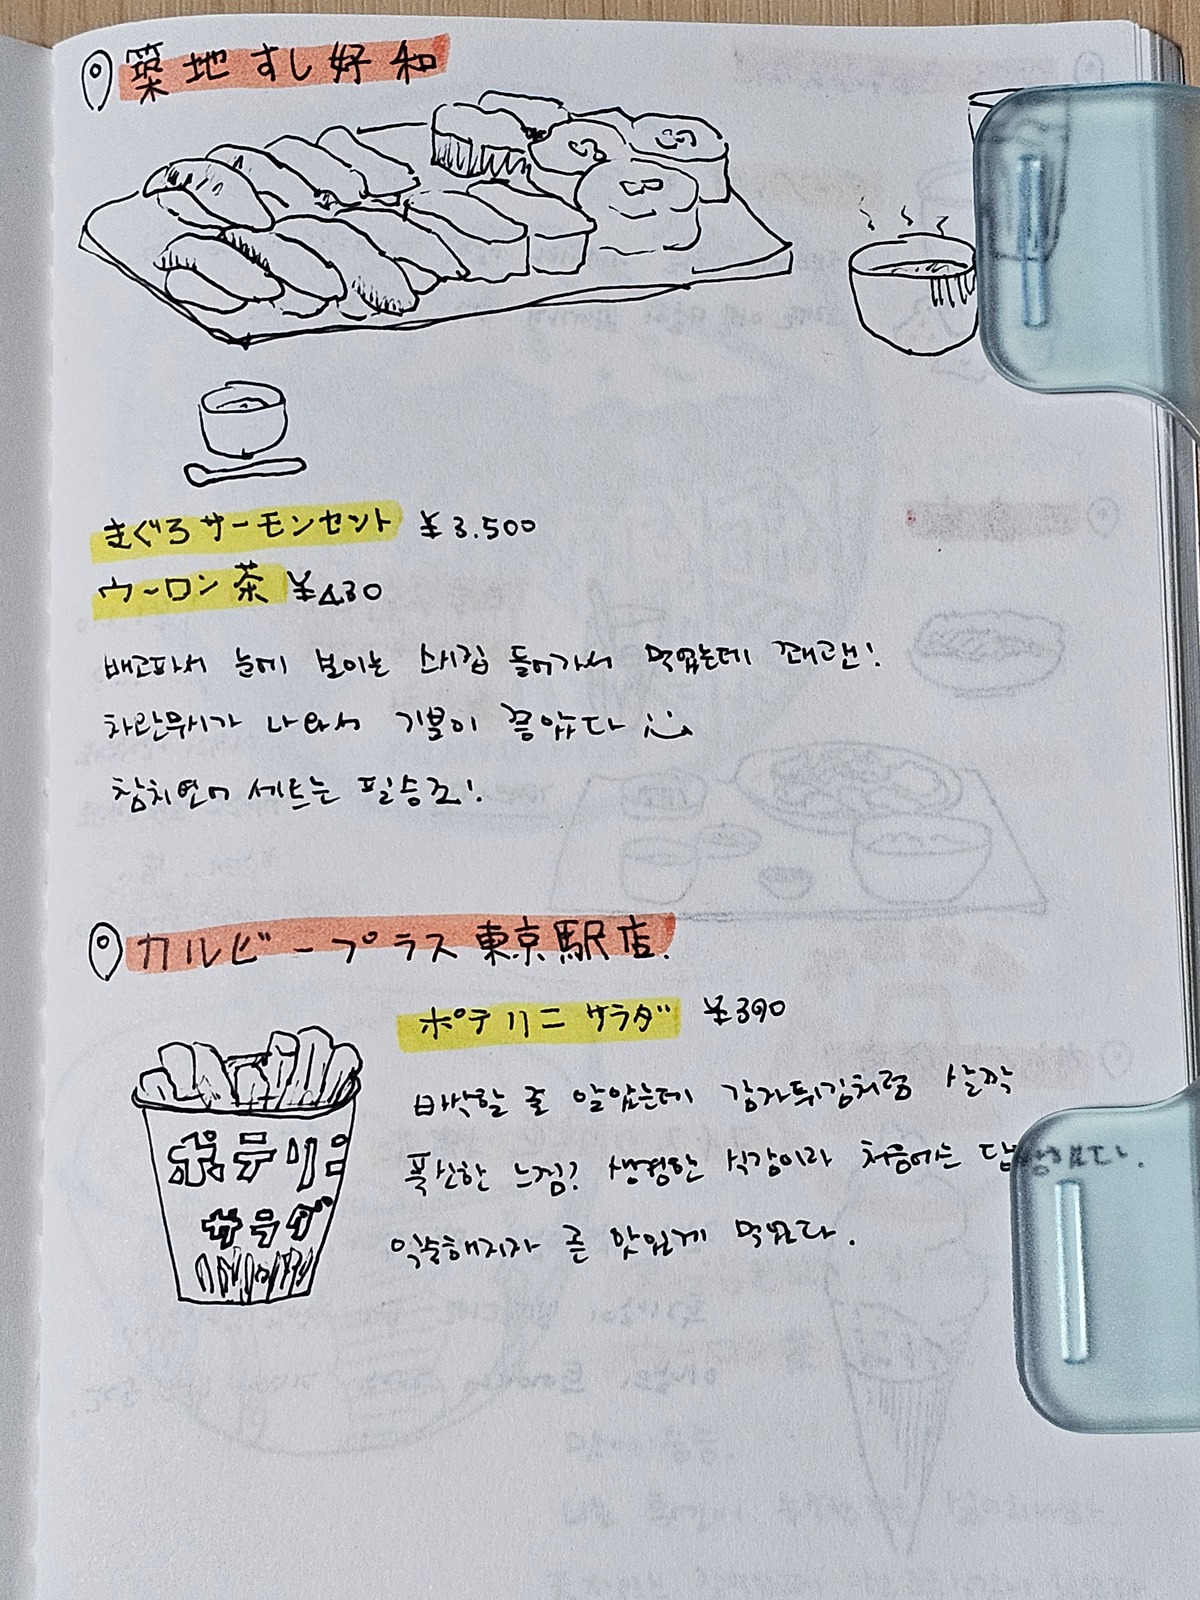 築地すし好 和
まぐろサーモンセット ¥3.500
ウーロン茶 ¥430
배고파서 눈에 보이는 스시집 들어가서 먹었는데 쾌괜!
차완무시가 나와서 기분이 좋았다
참치연어 세트는 필승조!
カルビープラス 東京駅店.
ポテリこ サラダ ¥390
바삭할 줄 알았는데 감자튀김처럼 살짝
폭신한 느낌? 생경한 식감이라 처음에는
익숙해지자 곧 맛있게 먹었다.
ポテリこ
サラダ